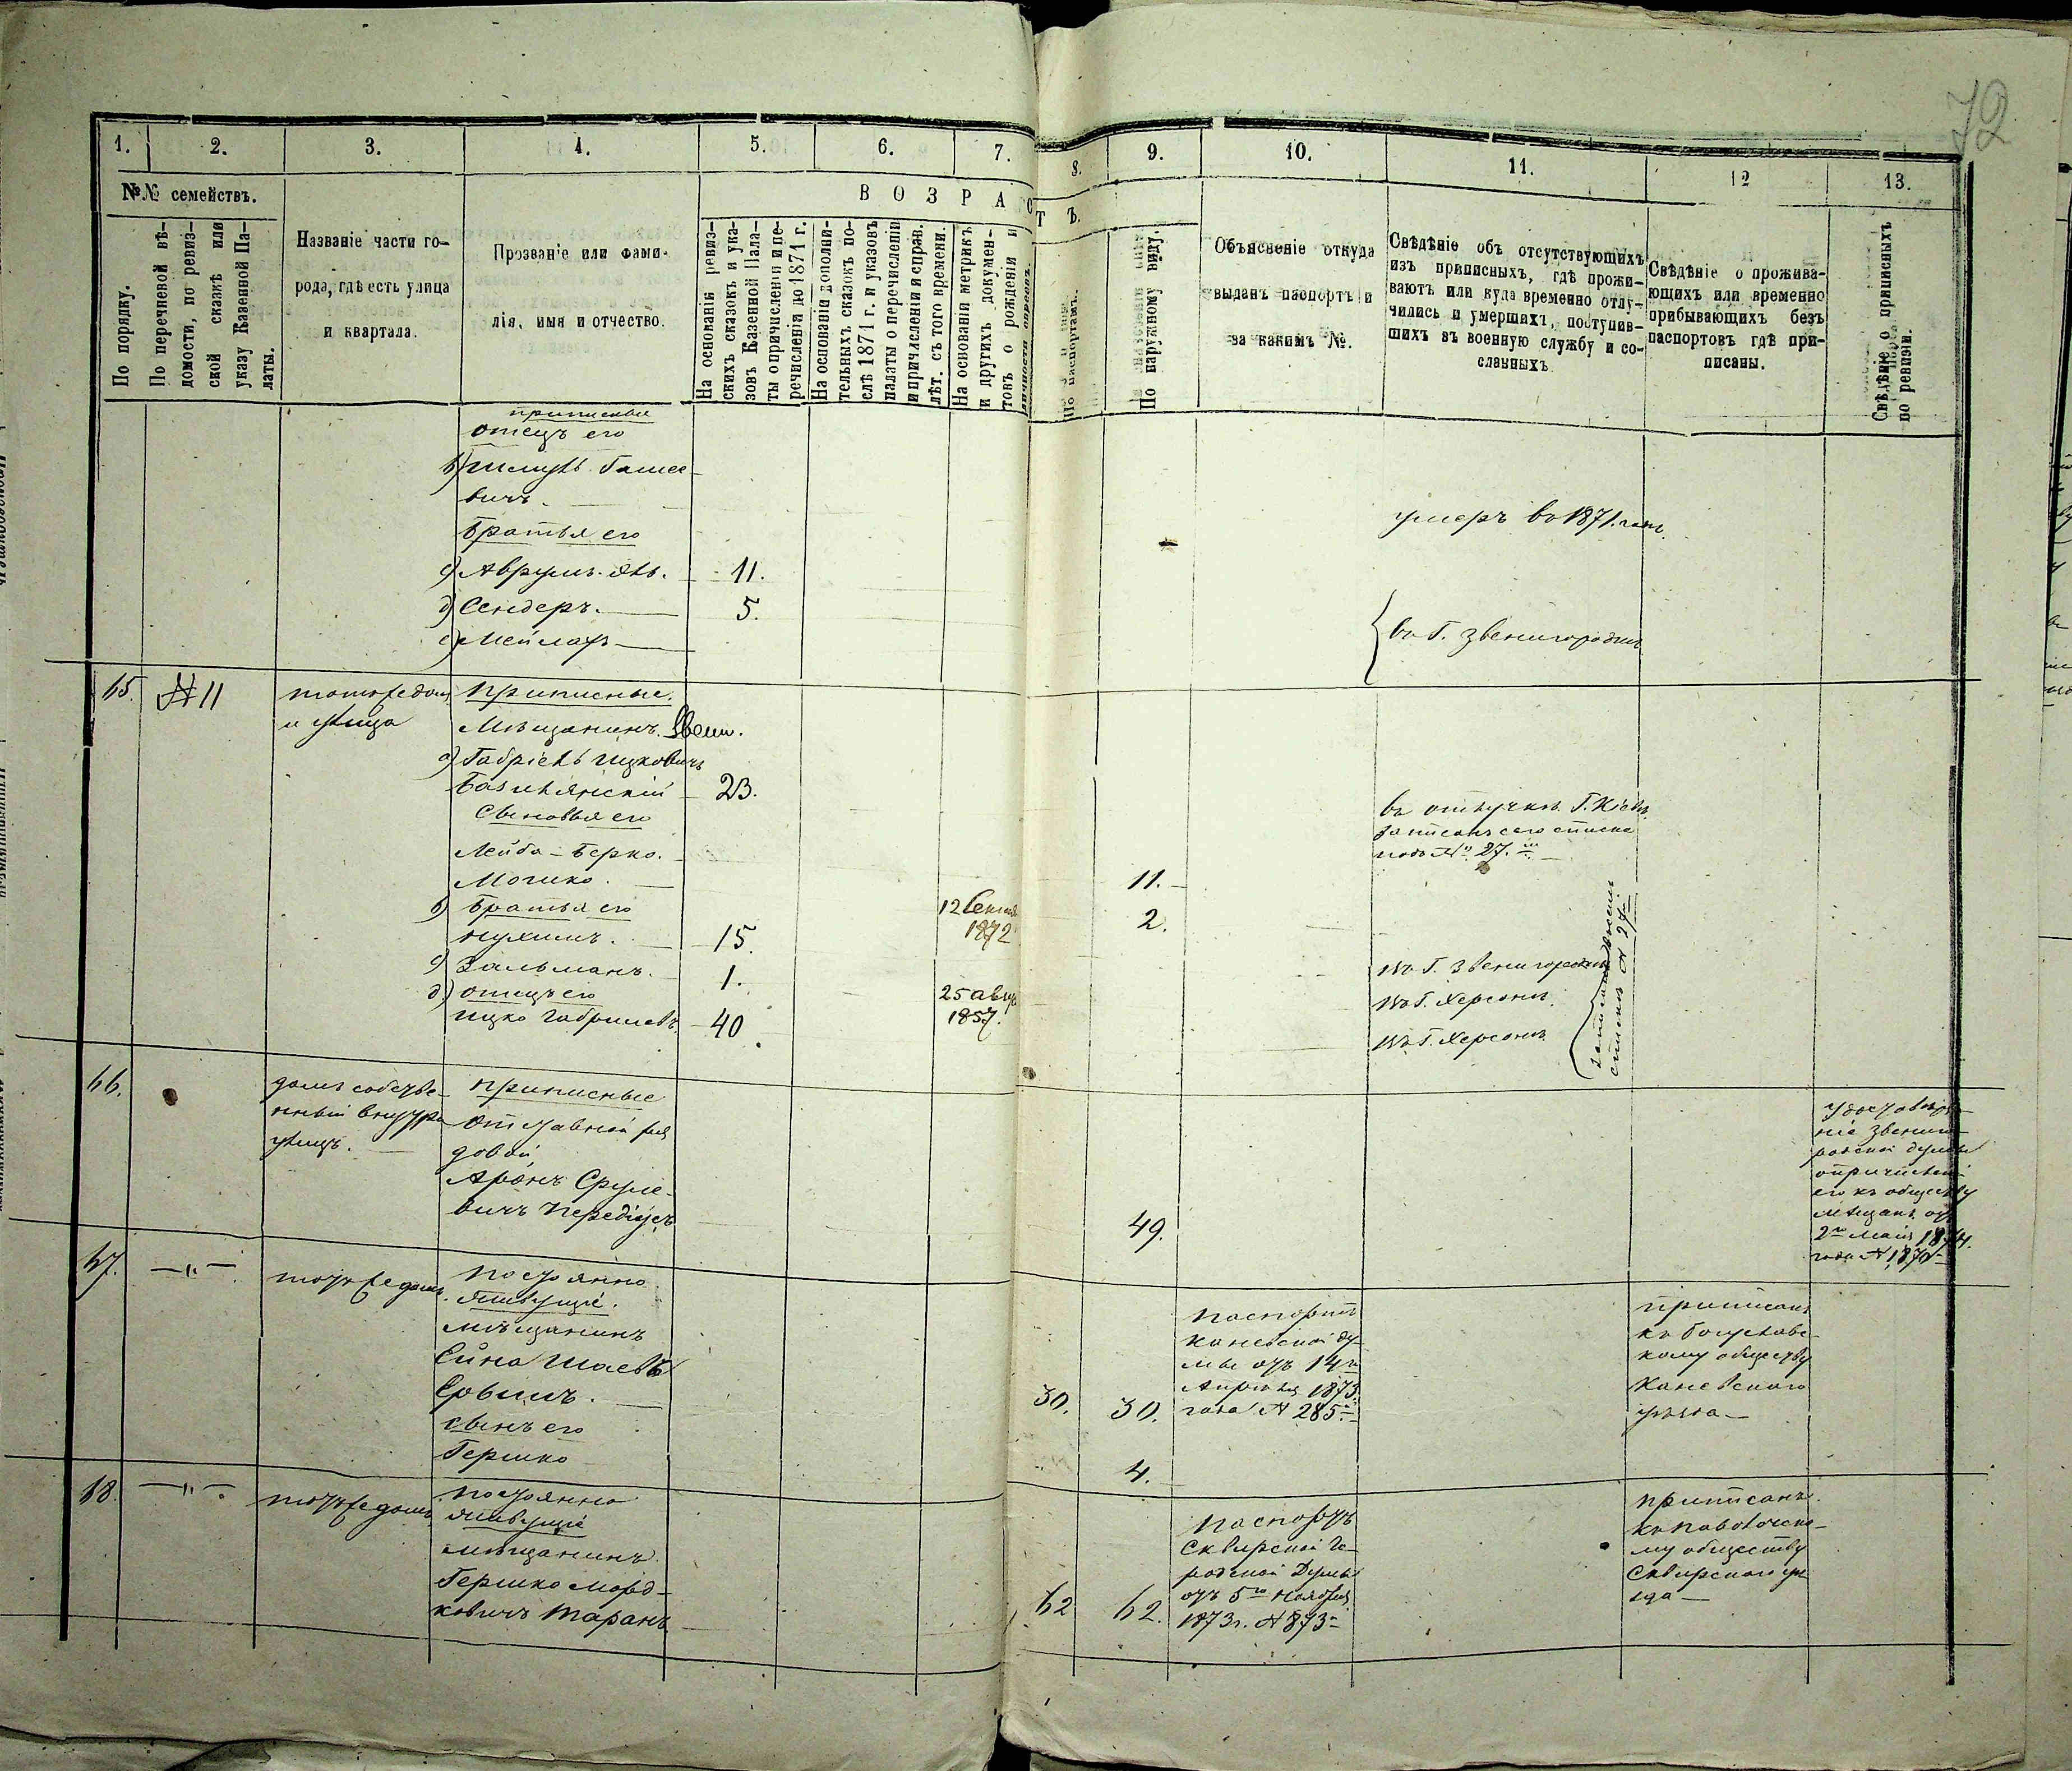 72
1. 2. 3. 4. 5. 6. 7. 8. 9. 10. 11. 12 13.
№№ семействъ.
По порядку.
По перечневой вѣ-
домости, по ревиз-
ской сказкѣ или
указу Казенной Па-
латы.
Названіе части го-
рода, гдѣ есть улица
и квартала.
Прозваніе или фами-
лія, имя и отчество.
ВОЗРАСТЪ.
На основаніи ревиз-
скихъ сказокъ и ука-
зовъ Казенной Пала-
ты о причисленіи и пе-
речисленіи до 1871 г.
На основаніи дополни-
тельныхъ сказокъ по-
слѣ 1871 г. и указовъ
палаты о перечисленіи
и причисленіи и справ.
лѣт. съ того времени.
На основаніи метрикъ
и другихъ докумен-
товъ о рожденіи и
личности опредѣл.
По паспортамъ.
По наружному виду.
Объясненіе откуда
выданъ паспортъ и
за какимъ №.
Свѣдѣніе объ отсутствующихъ
изъ приписныхъ, гдѣ прожи-
ваютъ или куда временно отлу-
чились и умершихъ, поступив-
шихъ въ военную службу и со-
сланныхъ
Свѣдѣніе о прожива-
ющихъ или временно
прибывающихъ безъ
паспортовъ гдѣ при-
писаны.
Свѣдѣніе о приписныхъ
по ревизіи.
приписные
отецъ его
вичъ
умеръ въ 1871.
Братья его
с) Аврумъ 11.
д) Сендеръ. 5.
е) Мейлахъ
въ Г. Звенигородкѣ
65. № 11
тотъ же домъ
и улица
приписные.
Мѣщанинъ Звен.
а) Габріель Ицковичъ
Базилянскій 23.
въ отлучкѣ Г. Кіевѣ
записанъ сего списка
подъ № 27.
Сыновья его
Лейба-Берко. 11.
Мошко. 12 Сентя 1872 2.
б) братья его
Нухимъ. 15. въ Г. Звенигородкѣ
с) Зальманъ. 1. 25 авгу 1857. въ Г. Херсонѣ.
д) отецъ его
Ицко Габріелевъ 40. въ Г. Херсонѣ
66.
домъ собстве-
нный внутри
улицъ.
приписные
отставной ря
довой
Аронъ Сруле-
вичъ 49.
удостовѣре-
ніе Звениго-
родской думы
о причисленіи
его къ обществу
мѣщанъ отъ
2го Мая 1874.
года № 1870
67. —"—
тотъ же домъ.
постоянно
живущіе.
мѣщанинъ
30. 30.
сынъ его
Гершко 4.
паспортъ
Каневской ду-
мы отъ 14го
Апрѣля 1873.
года № 285
приписанъ
къ Богуславс-
кому обществу
Каневского
уѣзда—
68. —"—
тотъ же домъ.
постоянно
живущіе
мѣщанинъ
Гершко Морд-
ковичъ Таранъ 62 62.
паспортъ
Сквирской Го-
родской Думы
отъ 5го Ноября
1873г. № 873
приписанъ
къ Паволочско-
му обществу
Сквирского уѣ
зда—